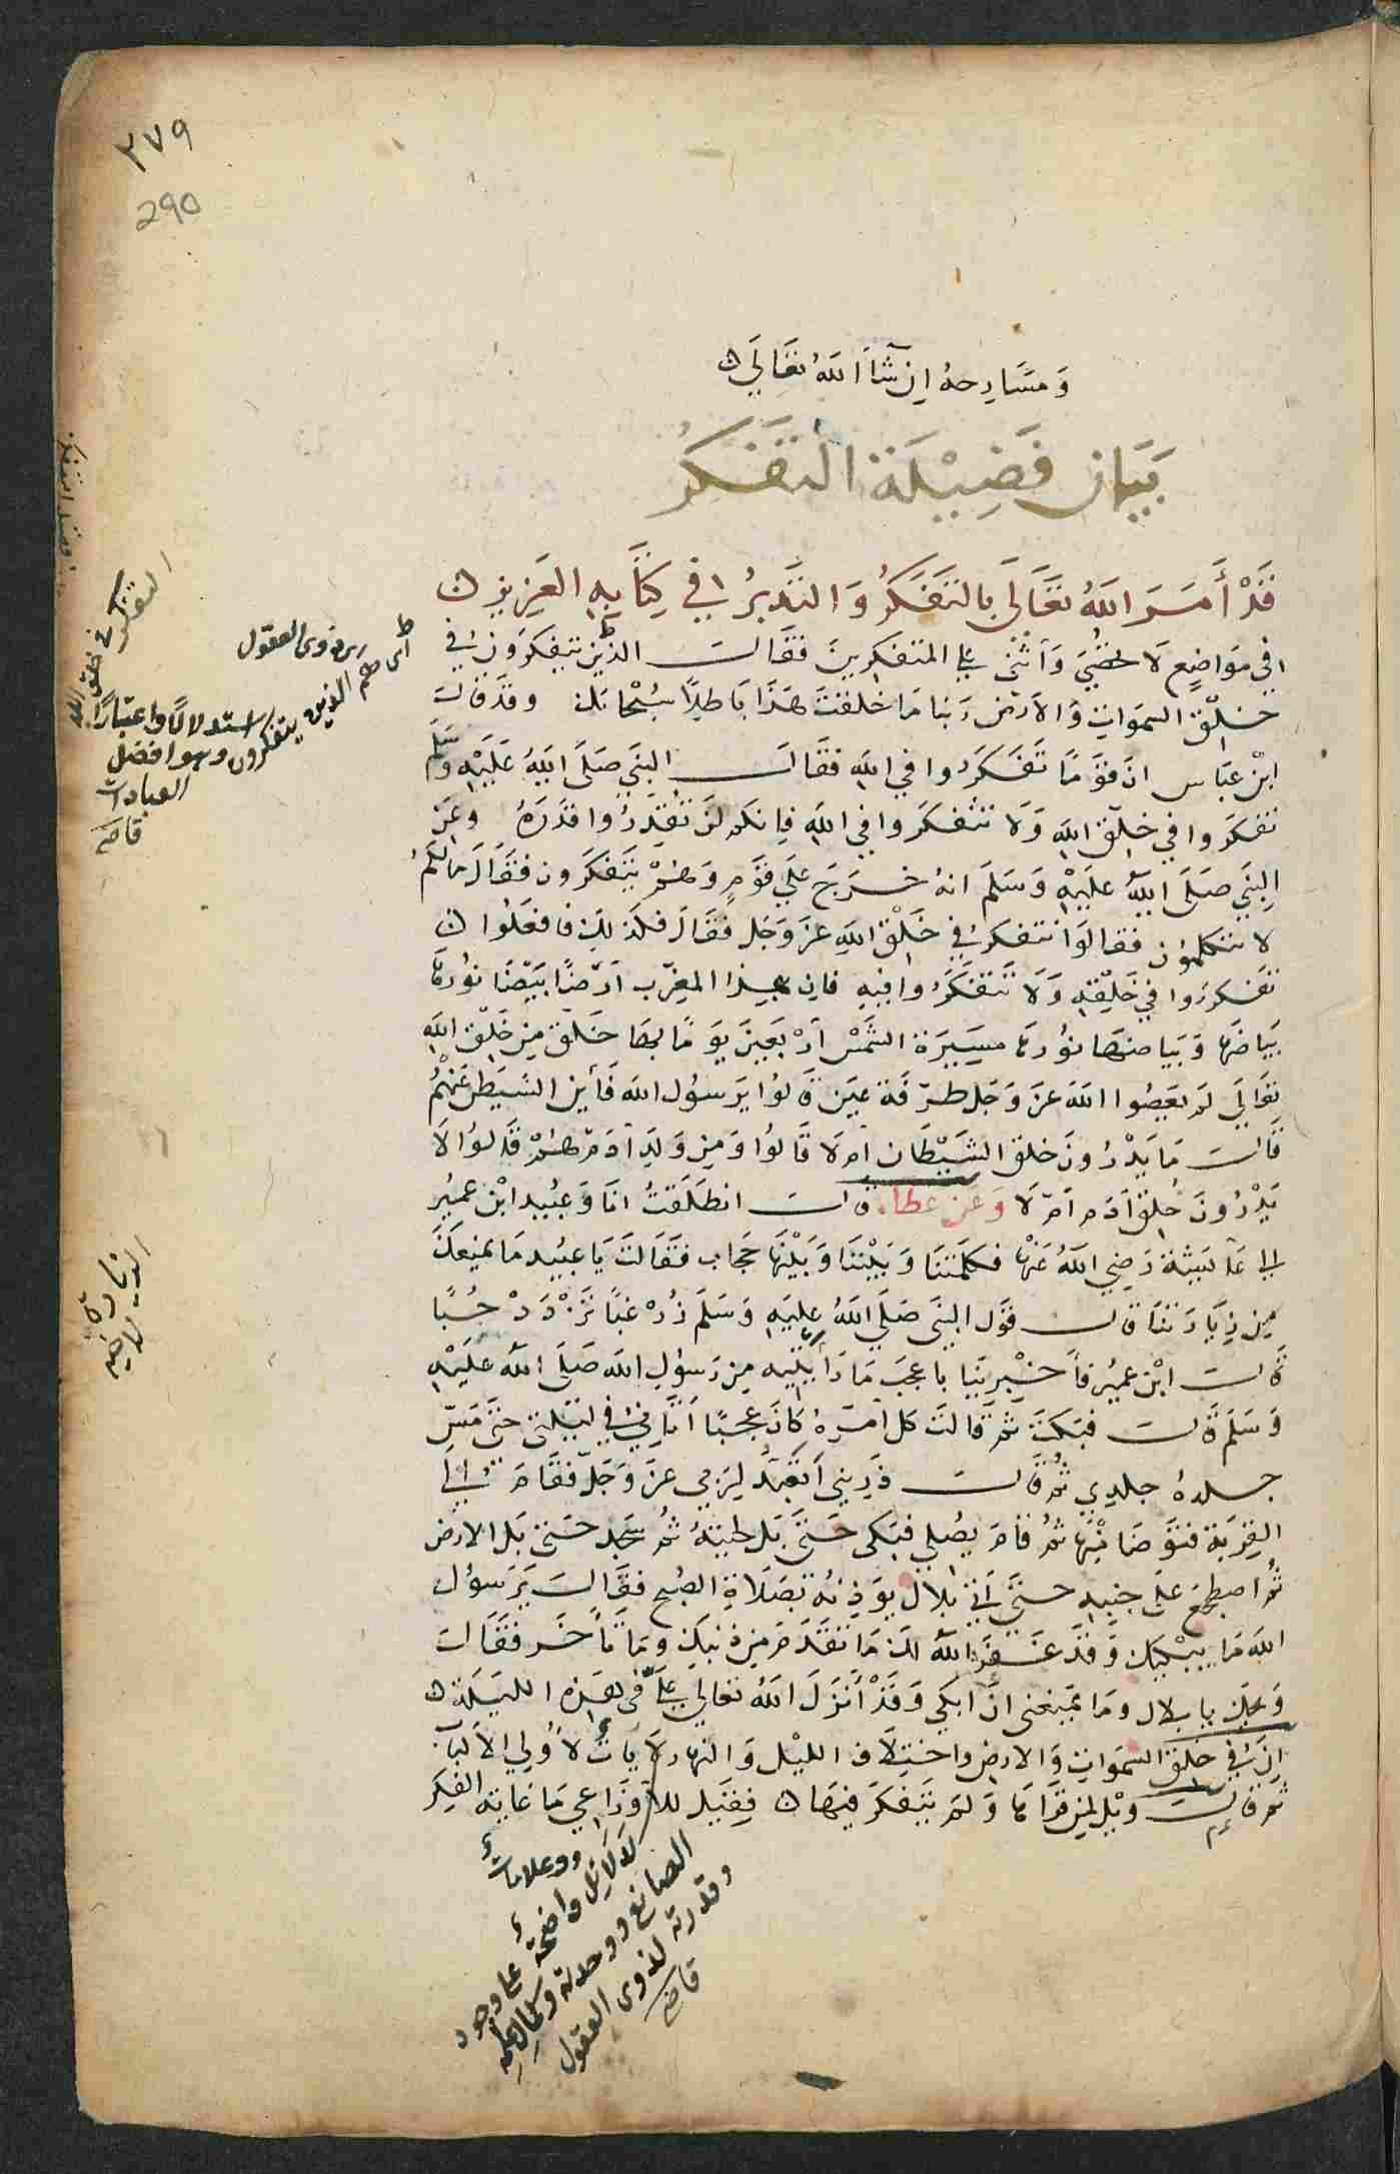 ٢٧٩
290
وَمسَارحهُ ان شَآءَ اللهُ تعَالَى
بَيَان فَضِيْلَة التفَكّر
قَدْ أَمَرَ اللهُ تعَالَى بِالتَفَكّرُ وَالتَّدبرُ فِي كِتَابِهِ العَزِيزِ
في مَوَاضِعٍ لَا تحصَى وَأَثْنَى على المتفكرينَ فقَالَ الذينَ يتفكرَون في
خلق السموَاتِ وَالأرَضِ رَبنا مَا خلقتَ هَذَا بَاطِلًا سُبْحَانَك وقد قال
ابْن عبَاس ان قوَمًا تَفَكَرَوا في اللهِ فقَالَ النبي صَلَى اللهُ عَلَيْهِ وَسَلَّم
تفكرَوا في خلق اللهِ وَلَا تتفكرَوا في اللهِ فانكم لن تَقْدِرُوا قَدْرَهُ وعَن
النبي صَلَى اللهُ عليْهِ وَسَلَم انهُ خَرَجَ عَلَى قوَمٍ وَهُمْ يتَفكَرَون فقَالَ مالكم
لا تتكلمون فقالوَا نتفكرُ في خَلْق اللهِ عَزَ وَجَل فقَالَ فكذلِك فافعَلُوا
تفكرَوا في خَلْقهِ وَلَا تَتفكَرُوا فيهِ فان بهذا المغرب أرَضًا بَيْضًا نوُرهَا
بَيَاضهَا وَبَيَاضهَا نوُرهَا مسَيرَة الشمْس أرْبَعينَ يوَمًا بهَا خَلق من خَلْق اللهِ
تعَالَى لم يَعصُوا اللهَ عَزَ وَجَل طرفَة عَيَن قَالوُا يَرَسوُل الله فَأين الشيَطن عَنهُمْ
قَالَ مَا يَدْرُونَ خلق الشَيْطَان أم لَا قَالوُا وَمِن وَلَدِ آدَمَ هُمْ قَالوُا لَا
يَدْرُونَ خُلِقَ آدَم أم لَا وَعَن عطاء قال انطلَقتُ انَا وَعبُيد ابْن عمُير
الى عَائشَة رَضي اللهُ عَنهَا فكلمَتنَا وَبَيْننَا وَبَيْنهَا حجَاب فقَالتَ يَا عبُيد مَا يمنعكَ
من زيَارَتنَا قال قوَل النبي صَلَى اللهُ عليَهِ وَسَلَم زُرْ غبًا تَزْدَدْ حُبًا
قَالَ ابْن عمُير فأَخْبرينَا باعجَب مَا رَأيتيهِ من رَسوُل الله صَلَى اللهُ عليَهِ
وَسَلَم قَالَ فبَكتَ ثم قَالتَ كل أمْرِهُ كَانَ عجبًا أتَاني في ليَلتي حتىَ مَسّ
جلدهُ جلدِي ثُم قَالَ ذَرِيني أتعَبَدُ لرَبي عَزَ وَجَلّ فقَامَ الى
القربَة فتوَضَا منْهَا ثم قَامَ يصُلي فبَكى حَتىَ بَل لحيتهُ ثم سَجَد حَتىَ بَل الأرض
ثُم اضطجَع علىَ جنبهِ حتىَ أتىَ بلَال يوَذنهُ بصَلَاةِ الصُبح فقَالَ يَرَسوُل
الله مَا يبْكيكَ وَقدَ غَفَرَ اللهُ لكَ مَا تقَدمَ من ذنبكَ ومَا تأَخَر فقَالَ
وَيحكَ يا بلال ومَا يمنعنى ان أبكي وَقَدْ أنزَلَ اللهُ تعَالى عَلَيّ في هذِه الليَلَة
إن في خلق السموَاتِ وَالأرض واختلَاف الليْل وَالنهَار لَآيَات لأولي الألبَاب
ثم قال ويل لمن قرَأهَا وَلم يتَفكرَ فيهَا فقيَل للأَوزَاعي مَا غايَة الفكر
التفكر في خلق الله
اى هم الذين يتفكرون
استدلالًا واعتبارًا
وهو افضل
العبادات
قاضى
الزيارة
لدلائل واضحة على وجود
الصانع ووحدته وكمال علمه
وقدرته لذوى العقول
قاضى